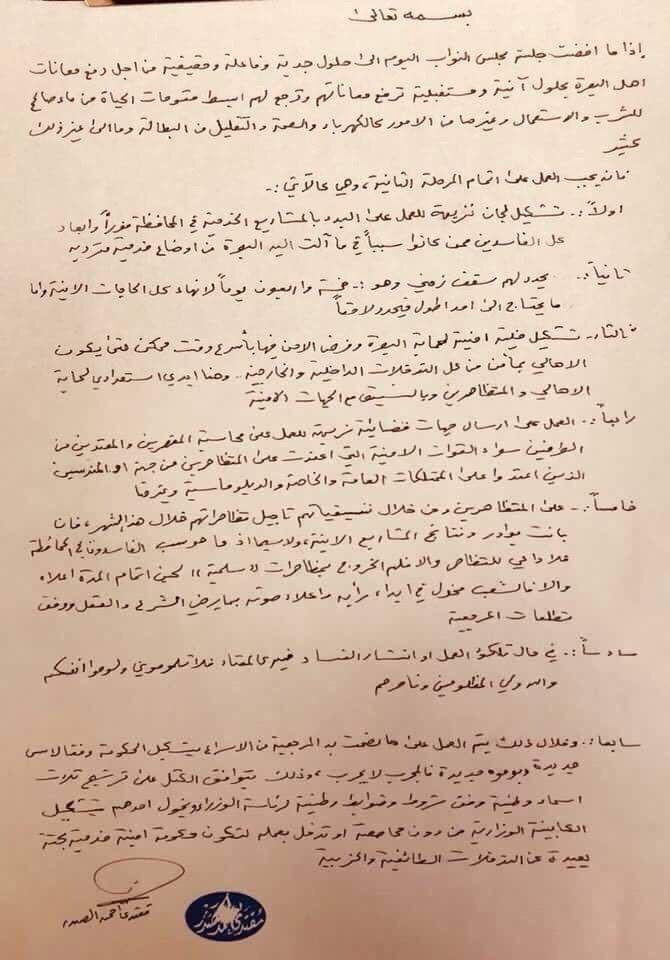 بسمه تعالى
إذا ما افضت جلسة مجلس النواب اليوم الى حلول جدية وفاعلة وحقيقية من اجل دفع معانات
اهل البصرة بحلول آنية ومستقبلية ترفع معاناتهم وترجع لهم ابسط مقومات الحياة من ماء صالح
للشرب والاستعمال وغيرها من الامور كالكهرباء والصحة والتقليل من البطالة وما الى غير ذلك
كثير
فانه يجب العمل على اتمام المرحلة الثانية، وهي كالآتي:-
اولاً:- تشكيل لجان نزيهة للعمل على البدء بالمشاريع الخدمية في المحافظة فوراً وابعاد
كل الفاسدين ممن كانوا سبباً في ما آلت اليه البصرة من اوضاع خدمية متردية
ثانياً:- يحدد لهم سقف زمني وهو:- خمسة واربعون يوماً لانهاء كل الحاجات الآنية واما
ما يحتاج الى امد اطول فيحدد لاحقاً
ثالثاً:- تشكيل خلية امنية لحماية البصرة وفرض الامن فيها بأسرع وقت ممكن حتى يكون
الاهالي بمأمن من كل التدخلات الداخلية والخارجية.. وهنا ابدي استعدادي لحماية
الاهالي والمتظاهرين وبالتنسيق مع الجهات الامنية
رابعاً:- العمل على ارسال جهات قضائية نزيهة للعمل على محاسبة المقصرين والمعتدين من
الطرفين سواء القوات الامنية التي اعتدت على المتظاهرين من جهة او المندسين
الذين اعتدوا على الممتلكات العامة والخاصة والدبلوماسية وغيرها
خامساً:- على المتظاهرين ومن خلال تنسيقياتهم تأجيل تظاهراتهم خلال هذا الشهر، فان
بانت بوادر ونتائج المشاريع الآنية، ولاسيما اذا ما حوسب الفاسدون في المحافظة
فلا داعي للتظاهر والا فلهم الخروج بمظاهرات «سلمية» لحين اتمام المدة اعلاه
والا فالشعب مخول في ابداء رأيه واعلاء صوته بما يرضي الشرع والعقل ووفق
تطلعات المرجعية
سادساً:- في حال تلكؤ العمل او انتشار الفساد فيه كالمعتاد فلا تلوموني ولوموا انفسكم
والله ولي المظلومين وناصرهم
سابعاً:- وخلال ذلك يتم العمل على ما نصحت به المرجعية من الاسراع بتشكيل الحكومة وفقاً لاسس
جديدة وبوجوه جديدة فالمجرب لا يجرب، وذلك بتوافق الكتل على ترشيح ثلاث
اسماء وطنية وفق شروط وضوابط وطنية لرئاسة الوزراء ويخول احدهم بتشكيل
الكابينة الوزارية من دون محاصصة او تدخل بعمله لتكون حكومة ابوية خدمية بحتة
بعيدة عن التدخلات الطائفية والحزبية
مقتدى الصدر